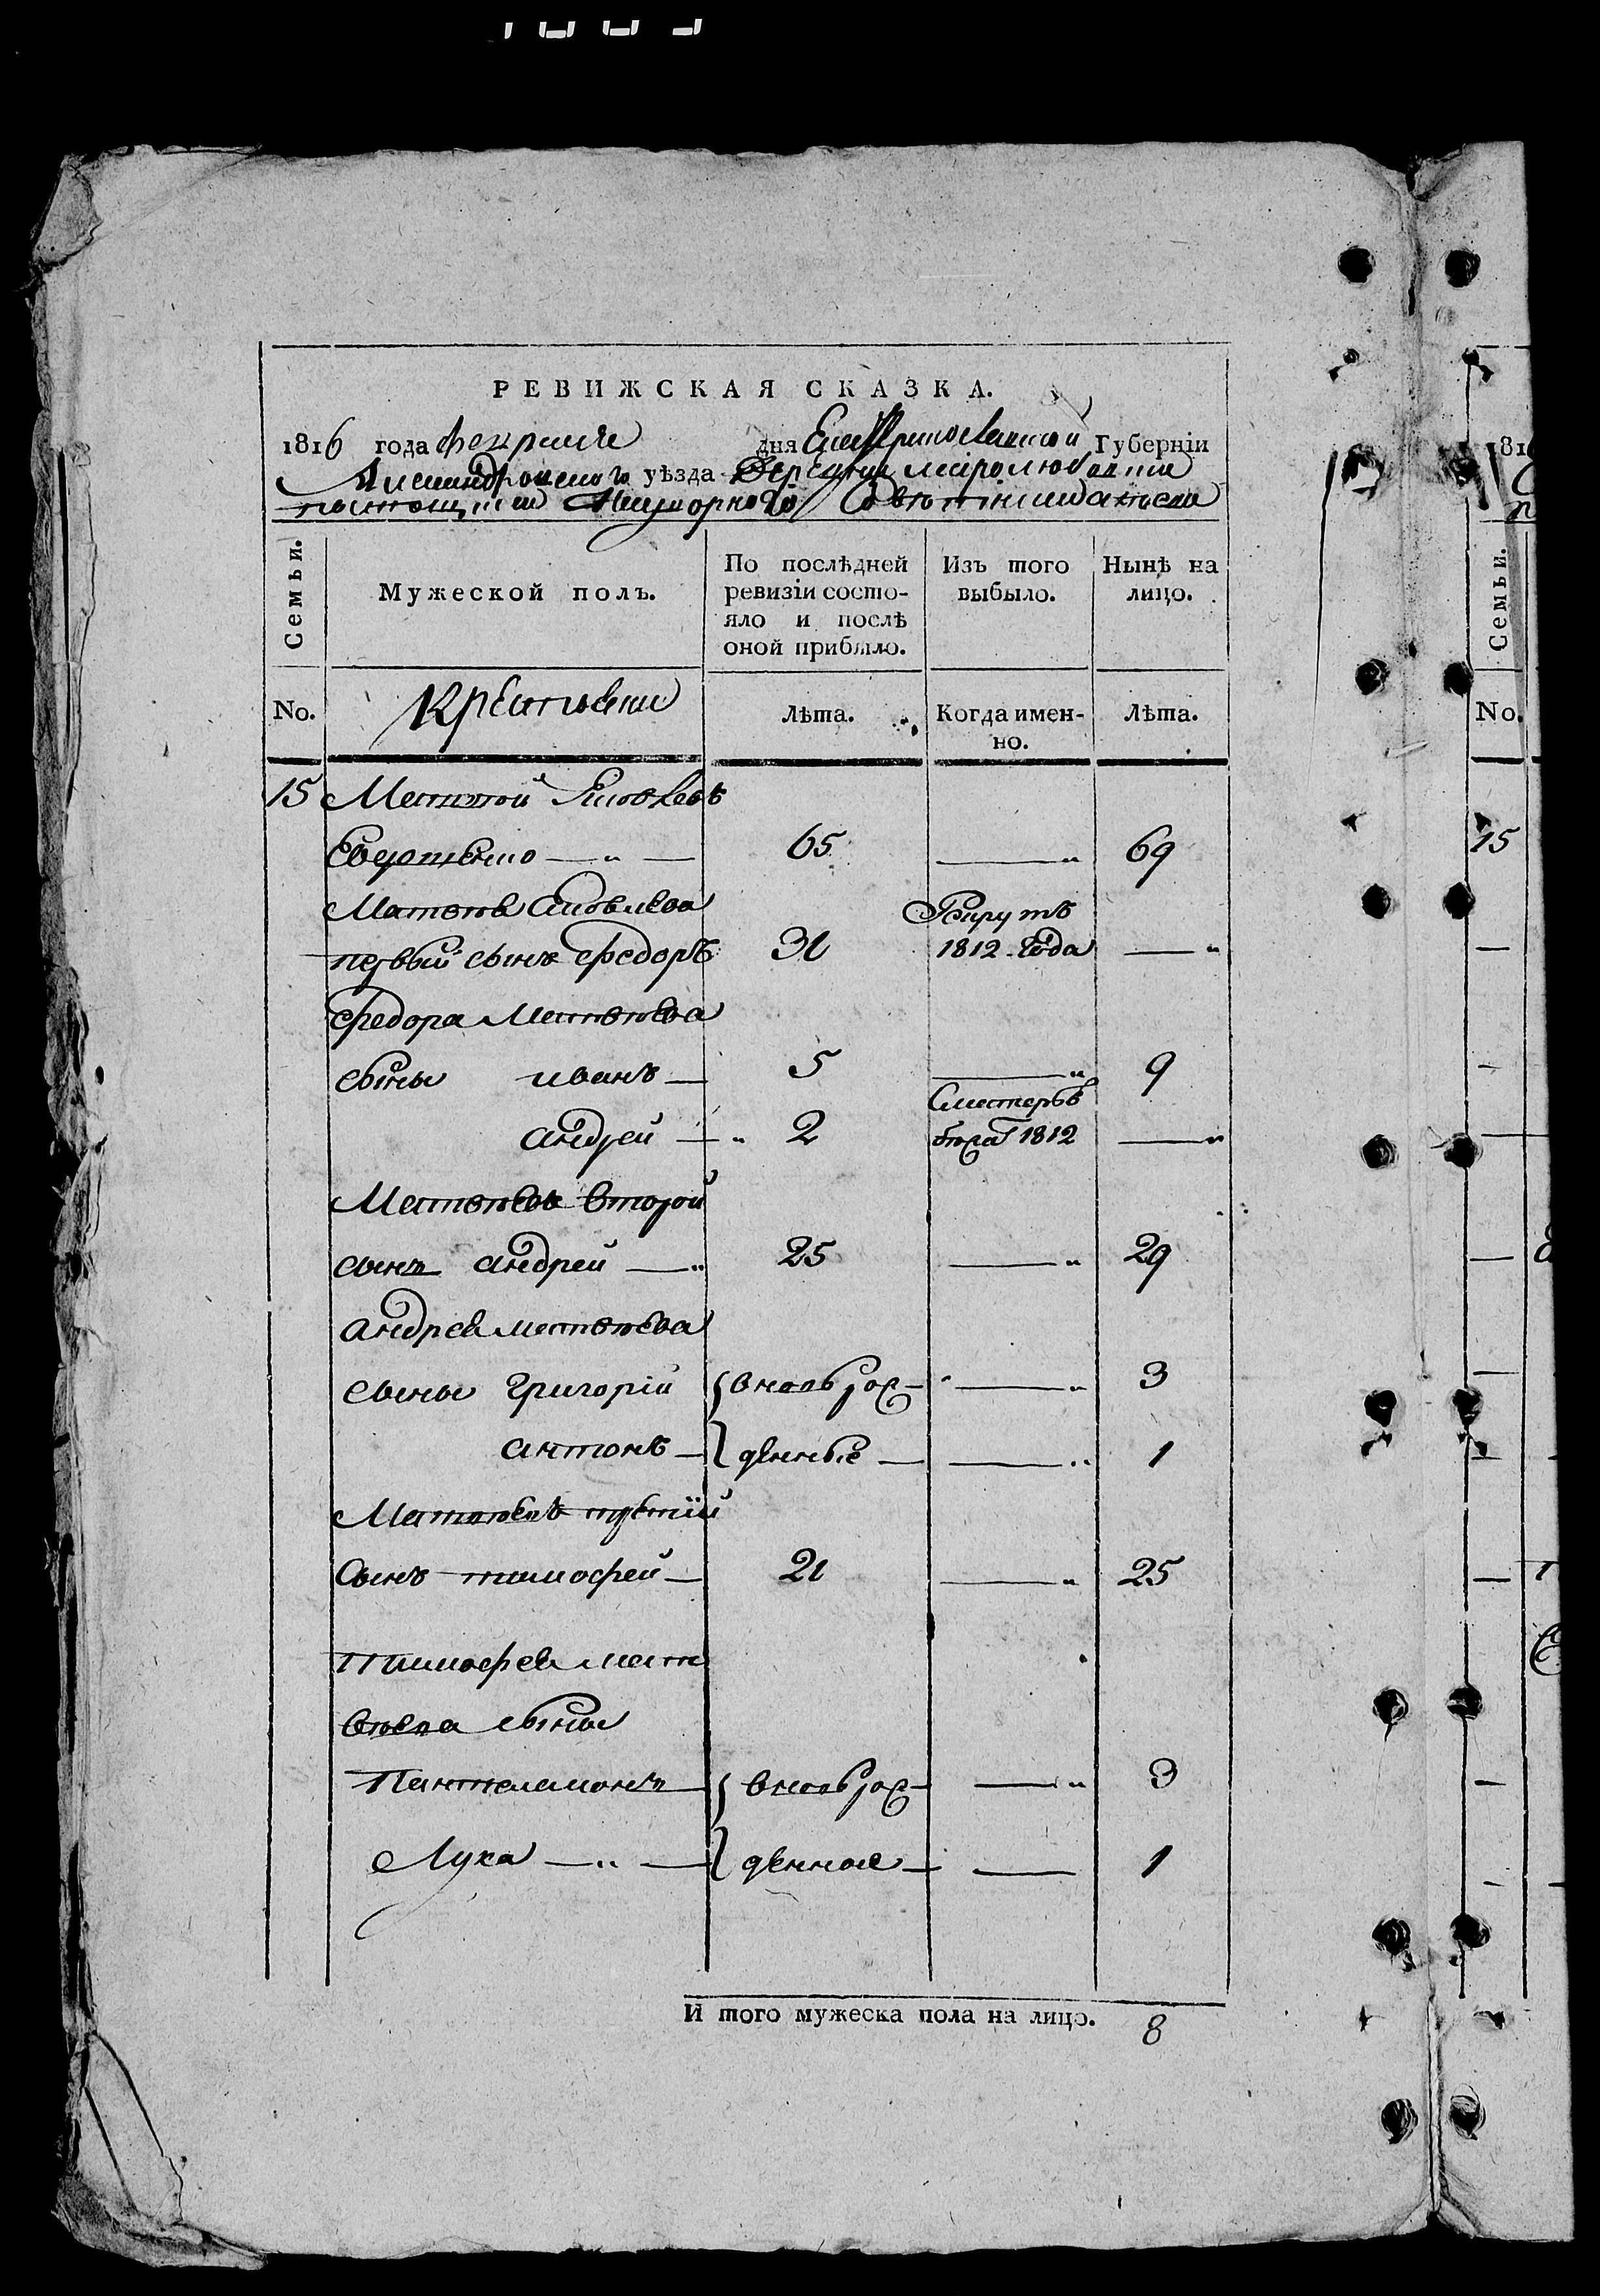 РЕВИЖСКАЯ СКАЗКА.
1816 года февраля дня Екатеринославской Губерніи
Александровскаго уѣзда деревни миролюбовки
помещика Надворного Советника
Семьи.
Мужеской полъ.
По послѣдней ревизіи состо-
яло и послѣ
оной прибыло.
Изъ того
выбыло.
Нынѣ на
лицо.
No.
Крестьяне
Лѣта.
Когда имен-
но.
Лѣта.
15 Матвей Яковлевъ
65 69
Матвея Яковлева
первый сынъ Федоръ 31 Рекрутъ 1812 Года
Федора Матвеева
сыны иванъ 5 9
андрей 2 1812
Матвеевъ второй
сынъ андрей 25 29
андрея матвеева
сыны григорій вновь рож- 3
антонъ денные 1
Матвеевъ третій
сынъ тимофей 21 25
тимофея мат
веева сыны
Пантелемонъ вновь рож- 3
Лука денные 1
И того мужеска пола на лицо. 8